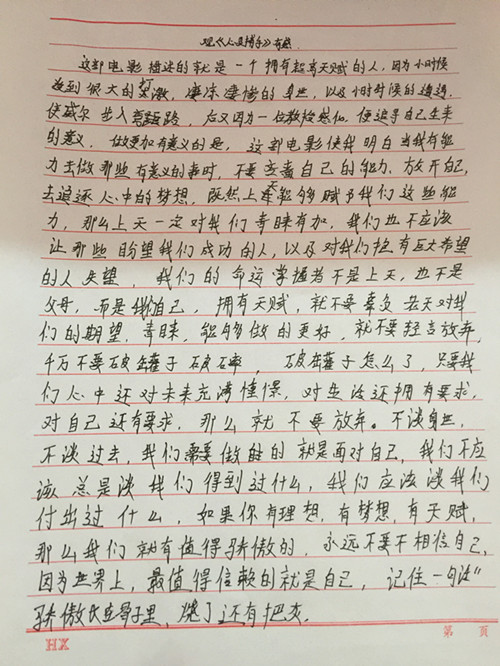 观《心灵捕手》有感
这部电影描述的就是一个拥有超高天赋的人,因为小时候
受到很大的打激,凄凉凄惨的身世,以及小时时候的遭遇,
使威尔步入 路,后又因为一位教授感化,使追寻自己生来
的意义,做更加有意义的是,这部电影使我明白当我有能
力去做那些有意义的事时,不要 自己的能力,放开自己,
去追逐心中的梦想,既然上天能够赋予我们这些能
力,那么上天一定对我们青睐有加,我们也不应该
让那些盼望我们成功的人,以及对我们抱有巨大希望
的人失望,我们的命运掌握者不是上天,也不是
父母,而是我们自己,拥有天赋,就不要辜负 天对我
们的期望,青睐,能够做的更好,就不要轻言放弃,
千万不要破罐子破摔,破罐子怎么了,只要我
们心中还对未来充满憧憬,对生活还拥有要求,
对自己还有要求,那么就不要放弃。不谈身世,
不谈过去,我们需要做的就是面对自己,我们不应
该总是谈我们得到过什么,我们应该谈我们
付出过什么,如果你有理想,有梦想,有天赋,
那么我们就有值得骄傲的,永远不要不相信自己,
因为世界上,最值得信赖的就是自己,记住一句话"
骄傲 在骨子里,烧了还有把灰.
HX
第 页